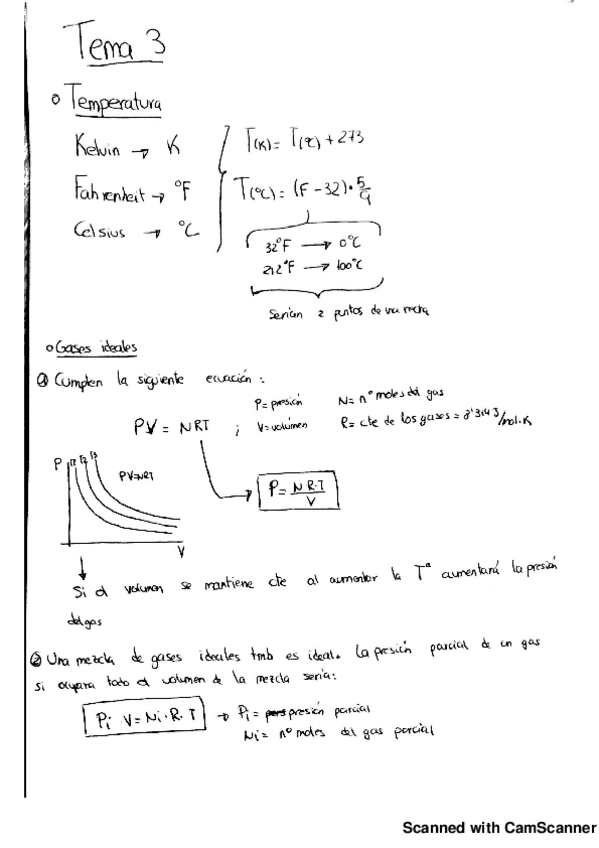 Tema 3
o Temperatura
Kelvin → K
Fahrenheit → °F
Celsius → °C
T(K) = T(ºC) + 273
T(ºC) = (F - 32) · 5/9
32°F → 0°C
212°F → 100°C
Serían 2 puntos de una recta
o Gases ideales
① Cumplen la siguiente ecuación :
PV = NRT ;
P = presión
V = volúmen
N = nº moles del gas
R = cte de los gases = 8'3143 J/mol·K
P
T1 T2 T3
PV=NRT
V
P = N·R·T / V
Si el volumen se mantiene cte al aumentar la Tª aumentará la presión
del gas
② Una mezcla de gases ideales tmb es ideal. La presión parcial de un gas
si ocupara todo el volumen de la mezcla sería:
Pi V = Ni · R · T → Pi = presión parcial
Ni = nº moles del gas parcial
Scanned with CamScanner